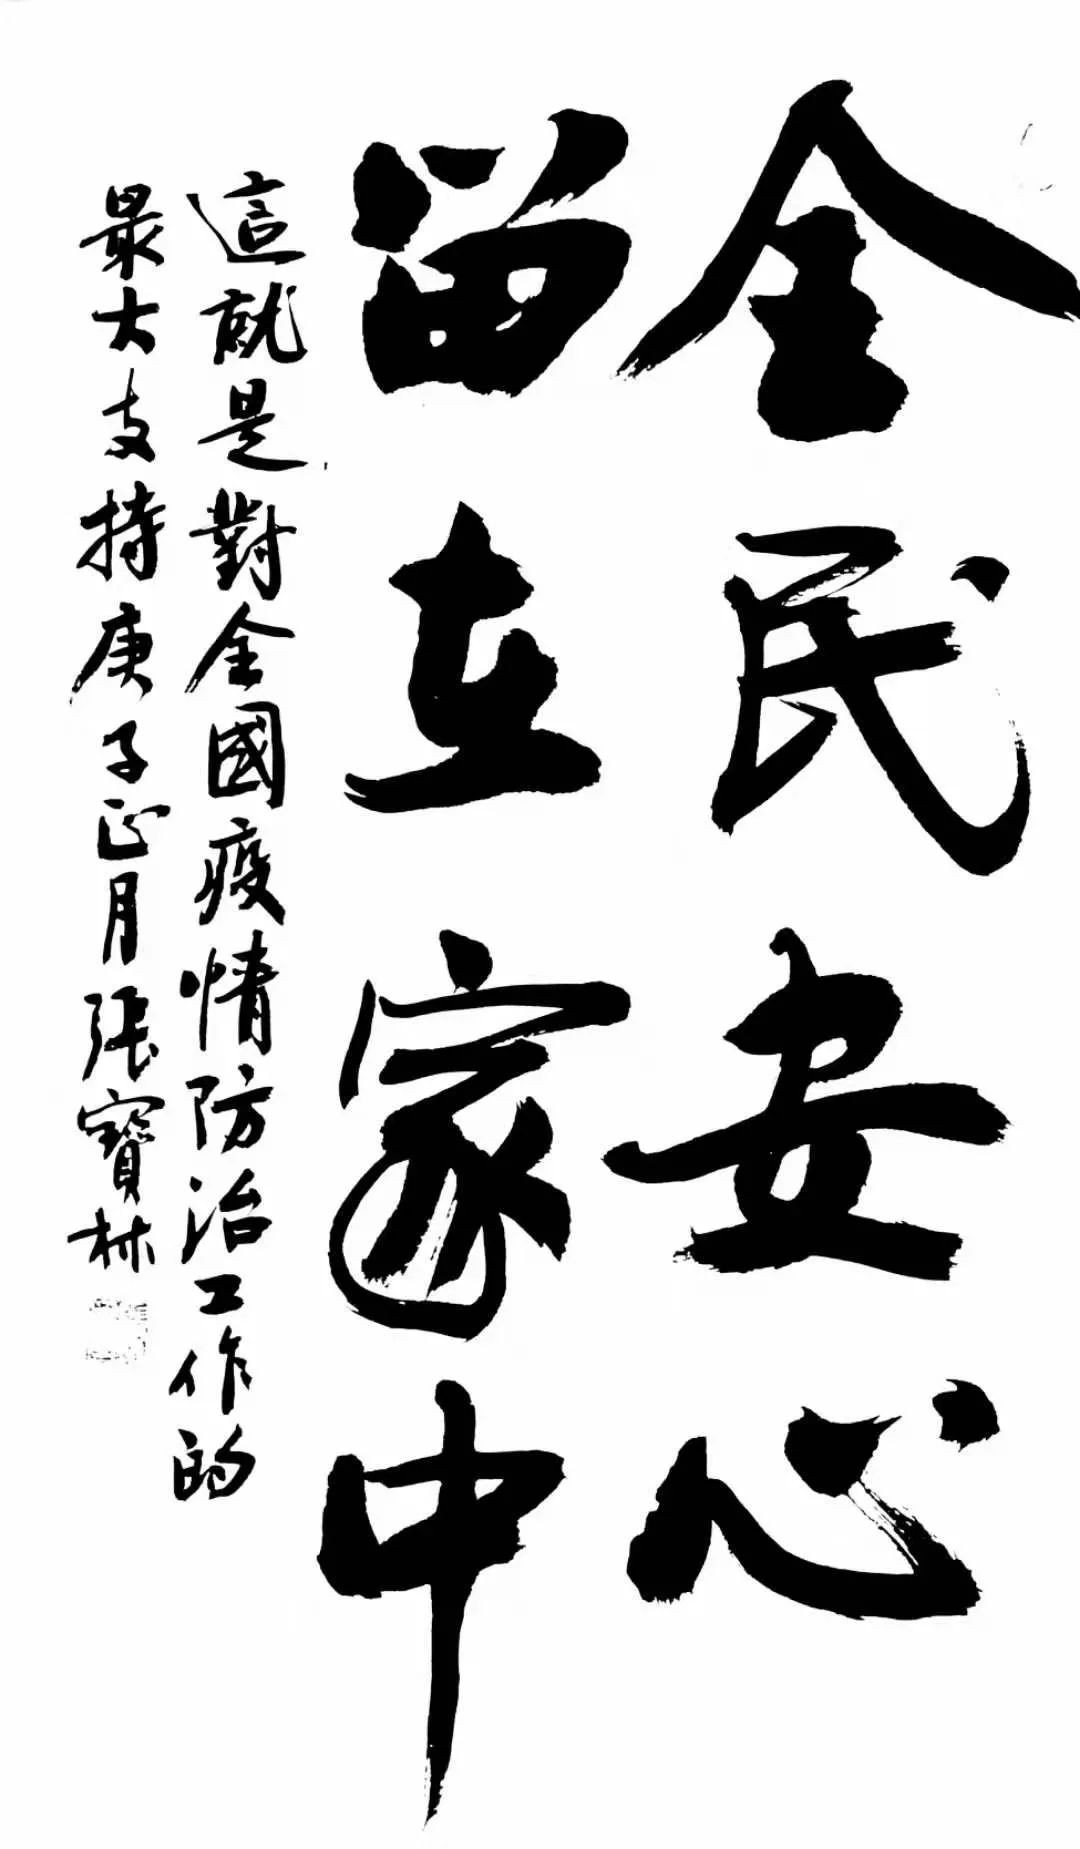 全民安心
留在家中
這就是對全國疫情防治工作的
最大支持庚子正月張寶林